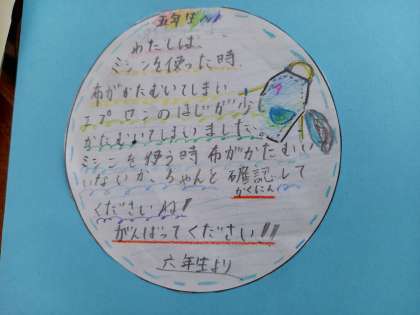 五年生へ
わたしは、
ミシンを使った時、
布がかたむいてしまい
エプロンのはじが少し
かたむいてしまいました。
ミシンを使う時布がかたむいい
いないか、ちゃんと確認して
かくにん
くださいね!!
がんばってください!!!
六年生より